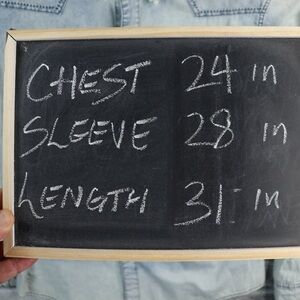 CHEST 24 in
SLEEVE 28 in
LENGTH 31 in